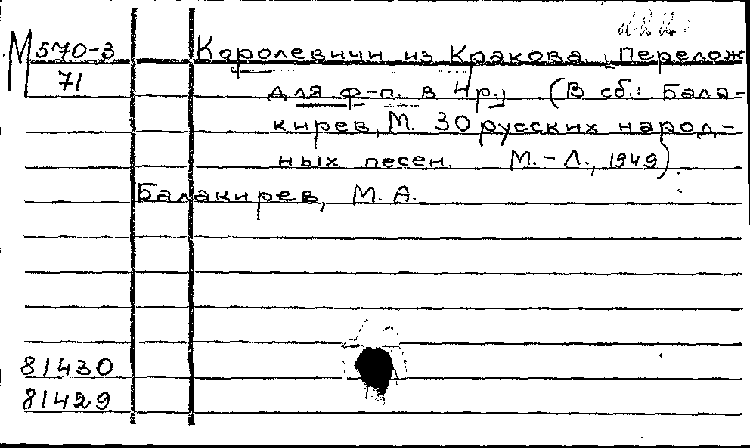 М 570-3 Королевичи из Кракова; Перелож
71 для ф-п. в 4 р.; (В сб.: Бала-
кирев, М. 30 русских народ-
ных песен. М.-Л., 1949).
Балакирев, М.А.
81430
81429